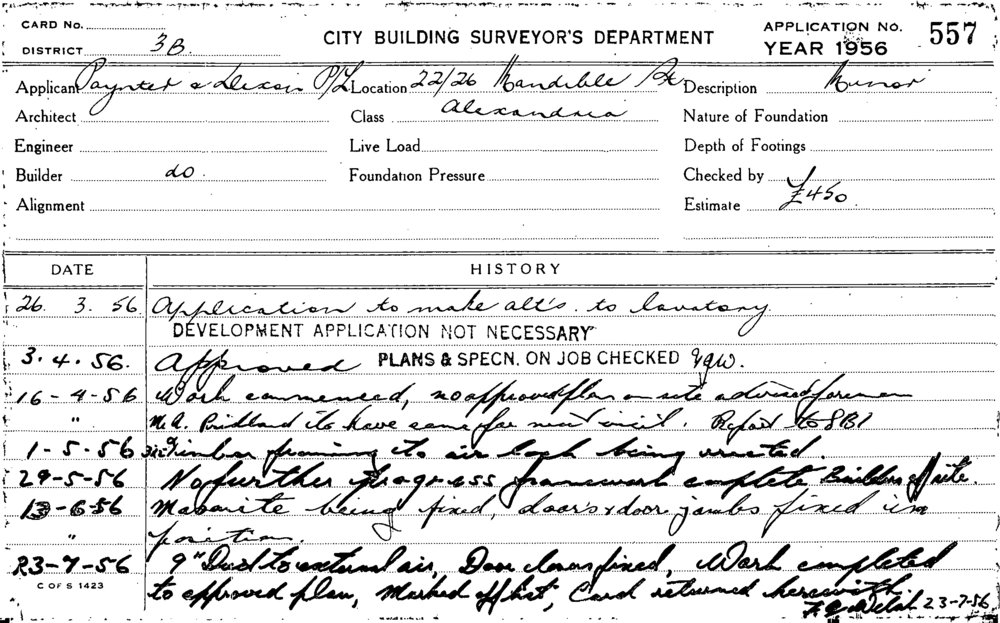 CARD No.
DISTRICT 3B
CITY BUILDING SURVEYOR'S DEPARTMENT
APPLICATION No. 557
YEAR 1956
Applicant Paynter & Dixon P/L Location 22/26 Mandible St Description Minor
Architect Class Alexandria Nature of Foundation
Engineer Live Load Depth of Footings
Builder do. Foundation Pressure Checked by
Alignment Estimate £450
DATE HISTORY
26. 3. 56 Application to make alt's. to lavatory
DEVELOPMENT APPLICATION NOT NECESSARY
3. 4. 56. Approved PLANS & SPECN. ON JOB CHECKED
16-4-56 Work commenced, no approved plan on site advised foreman
" Mr A. to have same for next visit. Report to SBI
1-5-56 Timber framing to air lock being erected.
29-5-56 No further progress framework complete Builders off site.
13-6-56 Masonite being fixed, doors & door jambs fixed in
" position.
23-7-56 9" Duct to external air, Door fixed, Work completed
to approved plan, Marked off list, Card returned herewith.
23-7-56
C OF S 1423